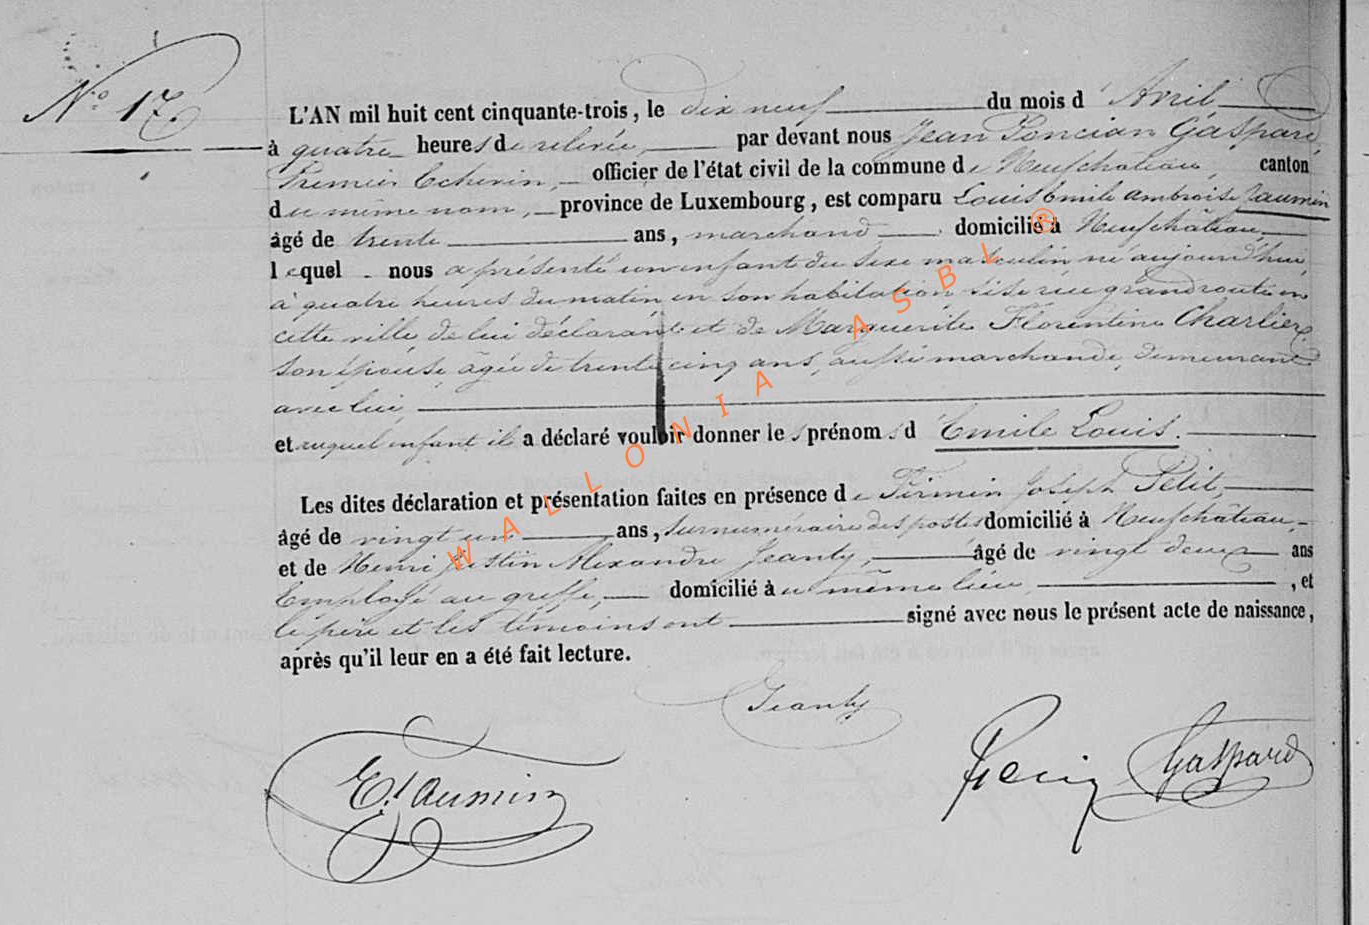 N° 17.
L'AN mil huit cent cinquante-trois, le dix neuf du mois d'Avril
à quatre heures de relevée, par devant nous Jean Poncian Gaspard,
Premier Echevin, officier de l'état civil de la commune de Neufchâteau, canton
du même nom, province de Luxembourg, est comparu Louis Emile Ambroise Jaumin
âgé de trente ans, marchand domicilié à Neufchâteau,
lequel nous a présenté un enfant du sexe masculin né aujourd'hui,
à quatre heures du matin en son habitation sise rue grand route en
cette ville de lui déclarant et de Marguerite Florentine Charlier,
son épouse, âgée de trente cinq ans, aussi marchande, demeurant
avec lui,
et auquel enfant il a déclaré vouloir donner les prénoms d'Emile Louis.
Les dites déclaration et présentation faites en présence de Firmin Joseph Petit,
âgé de vingt un ans, surnuméraire des postes domicilié à Neufchâteau,
et de Henri Justin Alexandre Jeanty, âgé de vingt deux ans
Employé au greffe, domicilié au même lieu, , et
le père et les témoins ont signé avec nous le présent acte de naissance,
après qu'il leur en a été fait lecture.
Jeanty
E. Jaumin
Gaspard
WALLONIA ASBL ®